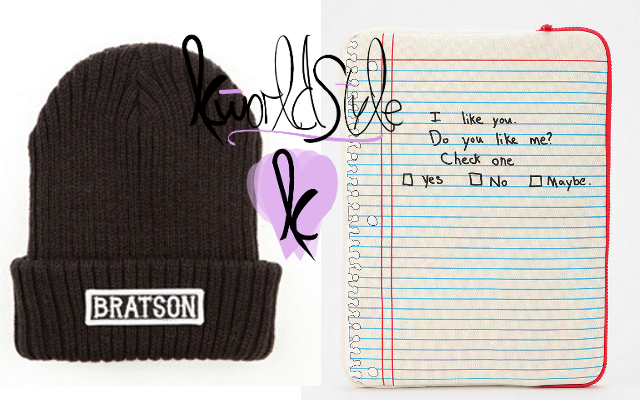 kworldStyle
k
BRATSON
I like you.
Do you like me?
Check one
Yes No Maybe.